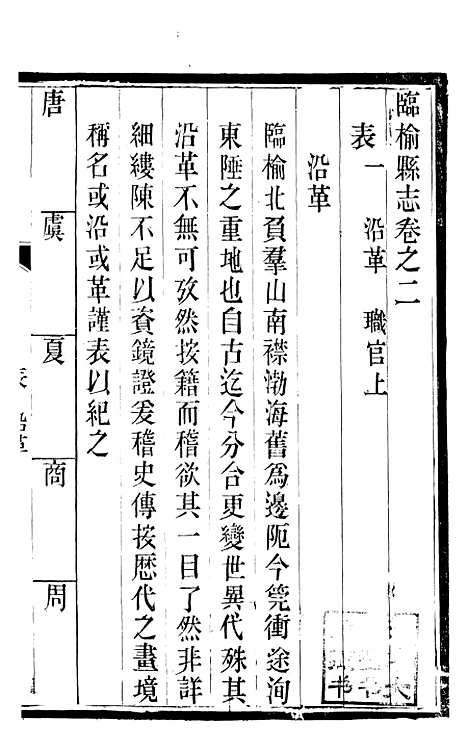 臨榆縣志卷之二
表一　沿革　職官上
沿革
臨榆北負羣山南襟渤海舊為邊阨今筦衝途洵
東陲之重地也自古迄今分合更變世異代殊其
沿革不無可攷然按籍而稽欲其一目了然非詳
細縷陳不足以資鏡證爰稽史傳按歴代之畫境
稱名或沿或革謹表以紀之
唐　虞　夏　商　周
表　沿革